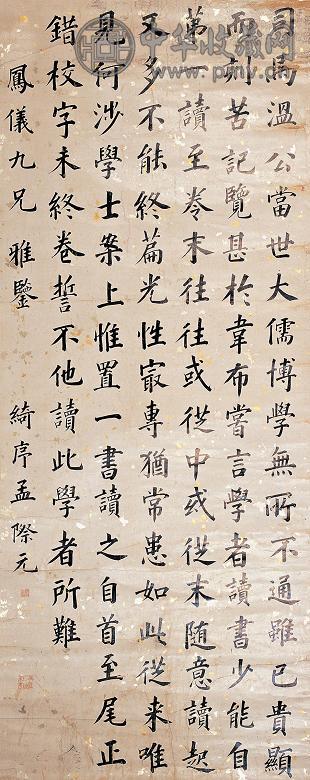 司馬溫公當世大儒博學無所不通雖已貴顯
而刻苦記覽甚於韋布嘗言學者讀書少能自
第一讀至卷末往往或從中或從末隨意讀起
又多不能終篇光性寂專猶常患如此從來唯
見何涉學士案上惟置一書讀之自首至尾正
錯校字未終卷誓不他讀此學者所難
鳳儀九兄雅鑒 綺序孟際元
中华收藏网